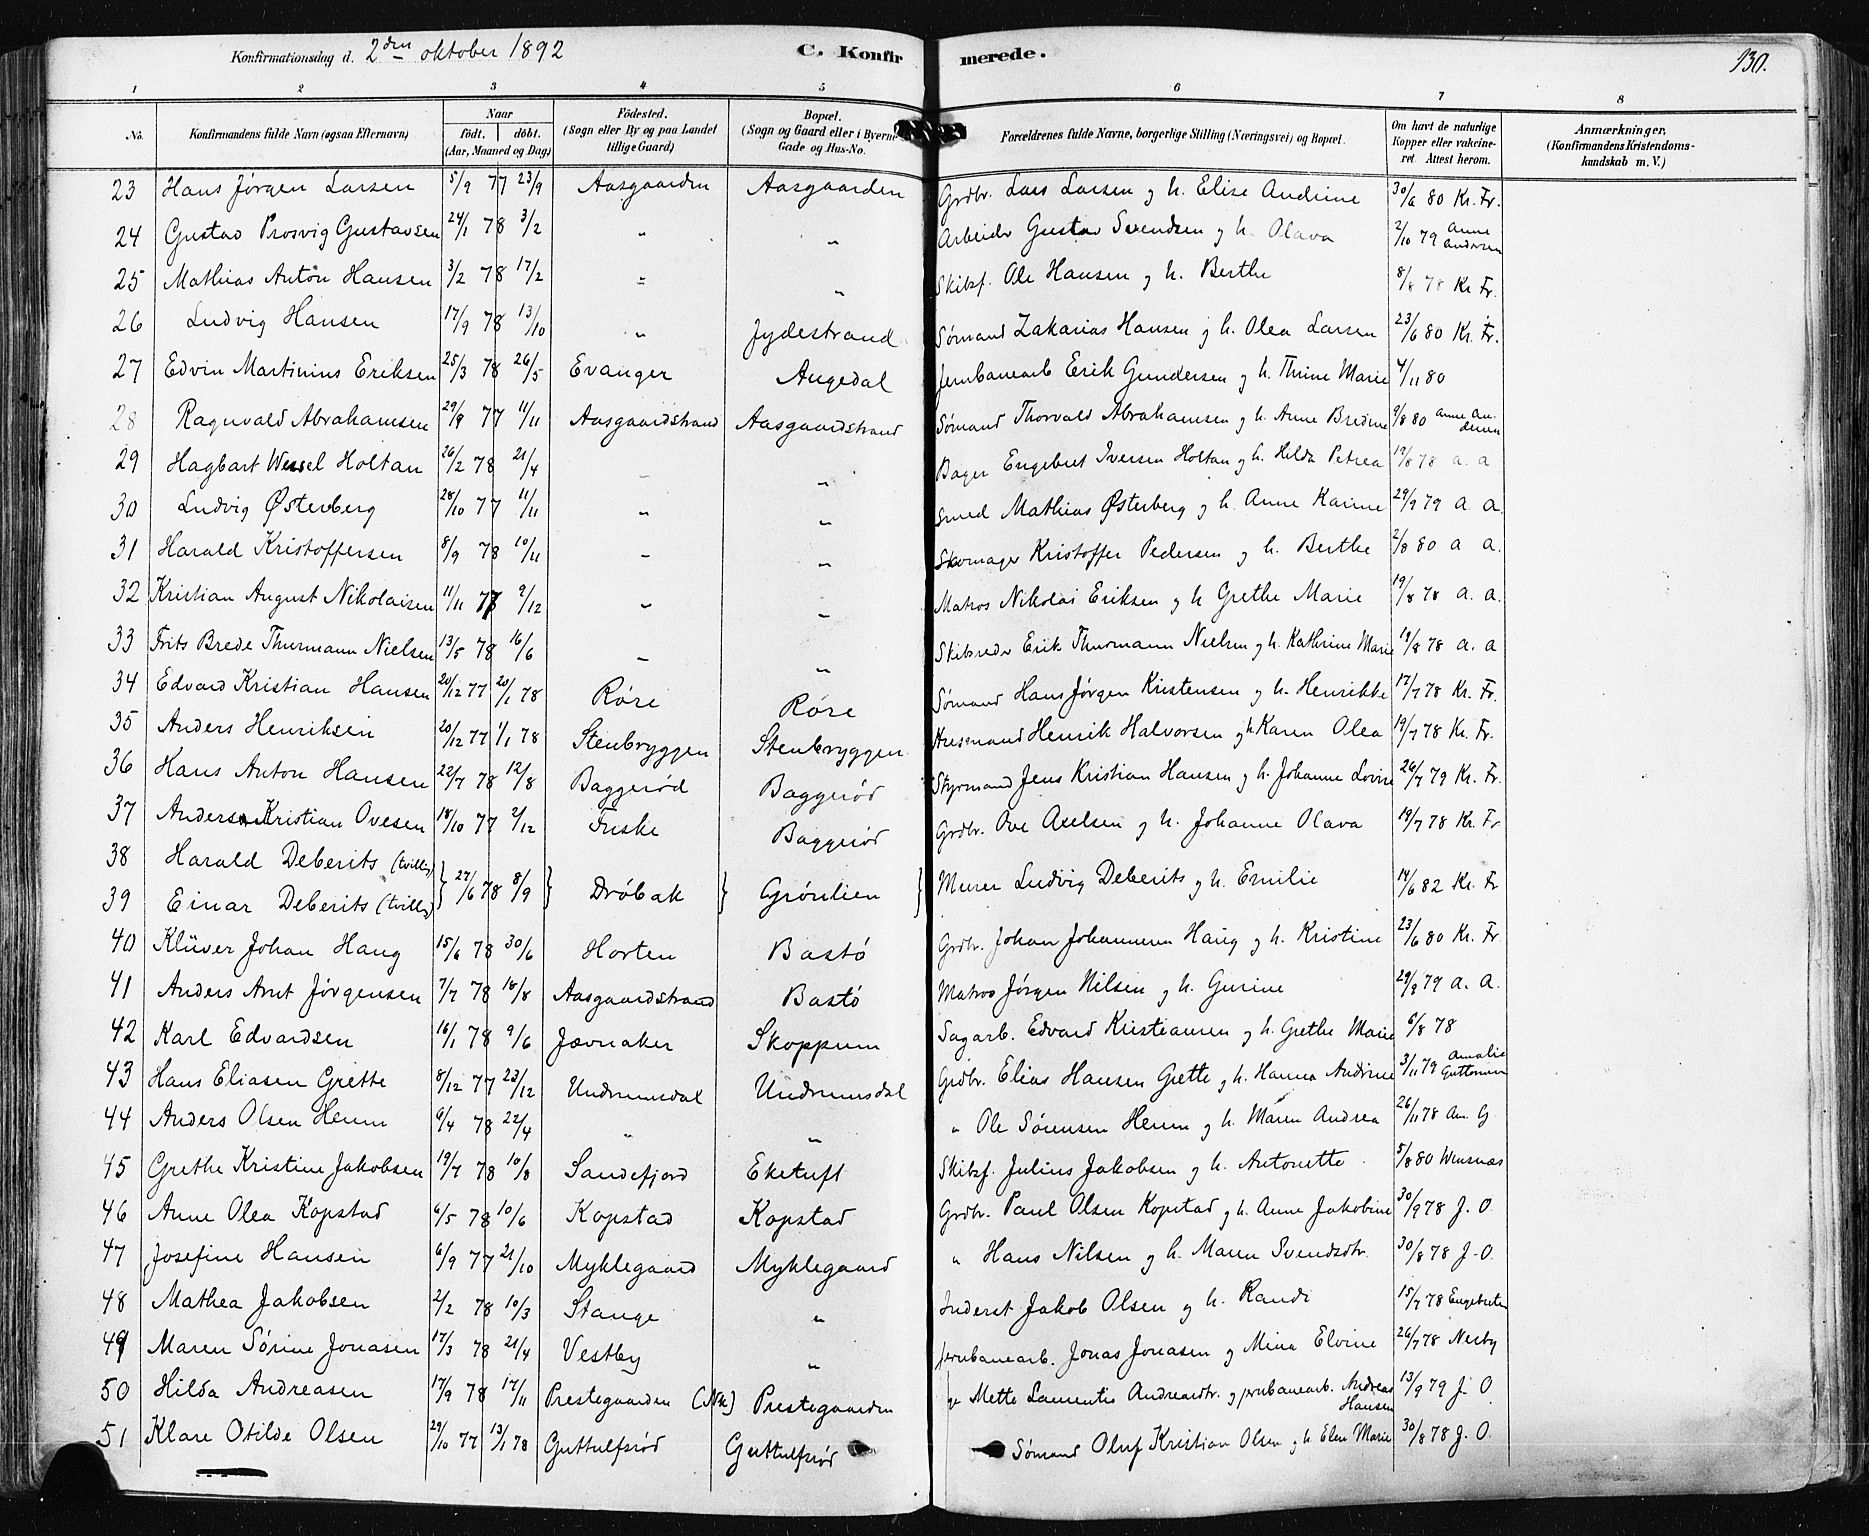 Konfirmationsdag d. 2den oktober 1892 C. Konfirmerede. 130.
1 2 3 4 5 6 7 8
No. Konfirmandens fulde Navn (ogsaa Efternavn) Naar født. døbt. (Aar, Maaned og Dag) Fødested. (Sogn eller By og paa Landet tillige Gaard) Bopæl. (Sogn og Gaard eller i Byerne Gade og Hus-No. Forældrenes fulde Navne, borgerlige Stilling (Næringsvei) og Bopæl. Om havt de naturlige Kopper eller vaccineret Attest herom. Anmærkninger. (Konfirmandens Kristendomskundskab m. V.)
23 Hans Jørgen Larsen 5/9 77 23/9 Aasgaarden Aasgaarden Grdbr. Lars Larsen og h. Elise Andrine 30/6 80 Kr. Fr.
24 Gustav Prosvig Gustavsen 24/1 78 3/2 " " Arbeider Gustav Svendsen og h. Olava 2/10 79 Anne Andersen
25 Mathias Anton Hansen 3/2 78 17/2 " " Skibsf. Ole Hansen og h. Berthe 8/8 78 Kr. Fr.
26 Ludvig Hansen 17/9 78 13/10 " Jydestrand Sømand Zakarias Hansen og h. Olea Larsen 23/6 80 Kr. Fr.
27 Edvin Martinius Eriksen 25/3 78 26/5 Evanger Augedal Jernbanearb Erik Gundersen og h. Thrine Marie 4/11 80
28 Ragnvald Abrahamsen 29/9 77 11/11 Aasgaardstrand Aasgaardstrand Sømand Thorvald Abrahamsen og h. Anne Bredine 9/8 80 Anne Andersen
29 Hagbart Wessel Holtan 26/2 78 21/4 " " Bager Engebret Iversen Holtan og h. Hilda Petrea 19/8 78 a. a
30 Ludvig Østerberg 28/10 77 11/11 " " Smed Mathias Østerberg og h. Anne Karine 29/9 79 a. a.
31 Harald Kristoffersen 8/9 78 10/11 " " Skomager Kristoffer Pedersen og h. Berthe 2/8 80 a a.
32 Kristian August Nikolaisen 11/11 77 9/12 " " Matros Nikolai Eriksen og h Grethe Marie 19/8 78 a. a.
33 Frits Brede Thurmann Nielsen 13/5 78 16/6 " " Skibsreder Erik Thurmann Nielsen og h. Kathrine Marie 19/8 78 a. a
34 Edvard Kristian Hansen 20/12 77 20/1 78 Røre Røre Sømand Hans Jørgen Kristensen og h. Henrikke 17/7 78 Kr. Fr.
35 Anders Henriksen 20/12 77 1/1 78 Stenbryggen Stenbryggen Husmand Henrik Halvorsen og h. Karen Olea 19/7 78 Kr. Fr.
36 Hans Anton Hansen 22/7 78 12/8 Baggerød Baggerød Styrmand Jens Kristian Hansen og h. Johanne Lovise 26/7 79 Kr. Fr.
37 Anders Kristian Ovesen 18/10 77 2/12 Fuske Baggerød Grdbr. Ove Axelsen og h. Johanne Olava 19/7 78 Kr. Fr
38 Harald Deberits (tvilling)
39 Einar Deberits (tvilling) } 27/6 78 8/9 } Drøbak } Grønlien } Murer Ludvig Deberits og h. Emilie 14/6 82 Kr. Fr
40 Klüver Johan Haug 15/6 78 30/6 Horten Bastø Grdbr. Johan Johannesen Haug og h. Kristine 23/6 80 Kr. Fr.
41 Anders Arnt Jørgensen 7/7 78 18/8 Aasgaardstrand Bastø Matros Jørgen Nilsen og h. Gurine 29/8 79 a. a.
42 Karl Edvardsen 16/1 78 9/6 Jævnaker Skoppum Sagarb. Edvard Kristiansen og h. Grethe Marie 6/8 78
43 Hans Eliasen Grette 8/12 77 23/12 Undrumsdal Undrumsdal Grdbr. Elias Hansen Grette og h. Hanna Andrine 3/11 79 Amalie Guttormsen
44 Anders Olsen Hemm 6/4 78 22/4 " " " Ole Sørensen Hemm og h. Maren Andrea 26/11 78 Am. G.
45 Grethe Kristine Jakobsen 19/7 78 10/8 Sandefjord Eketuft Skibsf. Julius Jakobsen og h. Antonette 5/8 80 Wensnæs
46 Anne Olea Kopstad 6/5 78 10/6 Kopstad Kopstad Grdbr. Paul Olsen Kopstad og h. Anne Jakobine 30/9 78 J. O.
47 Josefine Hansen 6/9 77 21/10 Myklegaard Myklegaard " Hans Nilsen og h. Maren Svendsdtr. 30/8 78 J. O.
48 Mathea Jakobsen 2/2 78 10/3 Stange " Inderst Jakob Olsen og h. Randi 15/7 78 Engebretsen
49 Maren Sørine Jonasen 17/3 78 21/4 Vestby " Jernbanearb. Jonas Jonasen og Mina Elvine 26/7 78 Nesby
50 Hilda Andreasen 17/9 78 17/11 Prestegaarden (Nk.) Prestegaarden Mette Laurentis Andreasdtr. og jernbanearb. Andreas Hansen 13/9 79 J. O.
51 Klare Otilde Olsen 29/10 77 13/1 78 Guttulfsrød Guttulfsrød Sømand Oluf Kristian Olsen og h. Elen Marie 30/8 78 J. O.